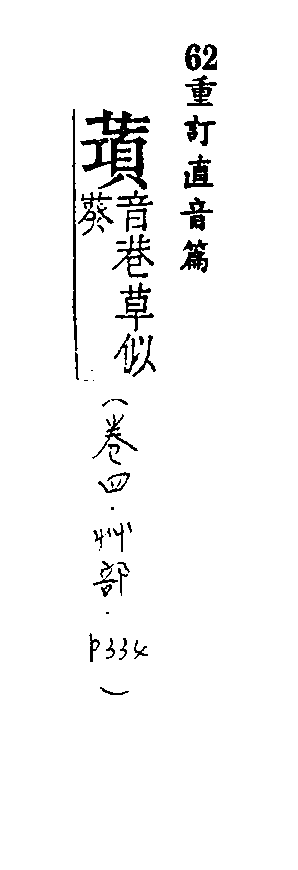 62重訂直音篇
音巷草似
葵
(卷四.艸部.p334)